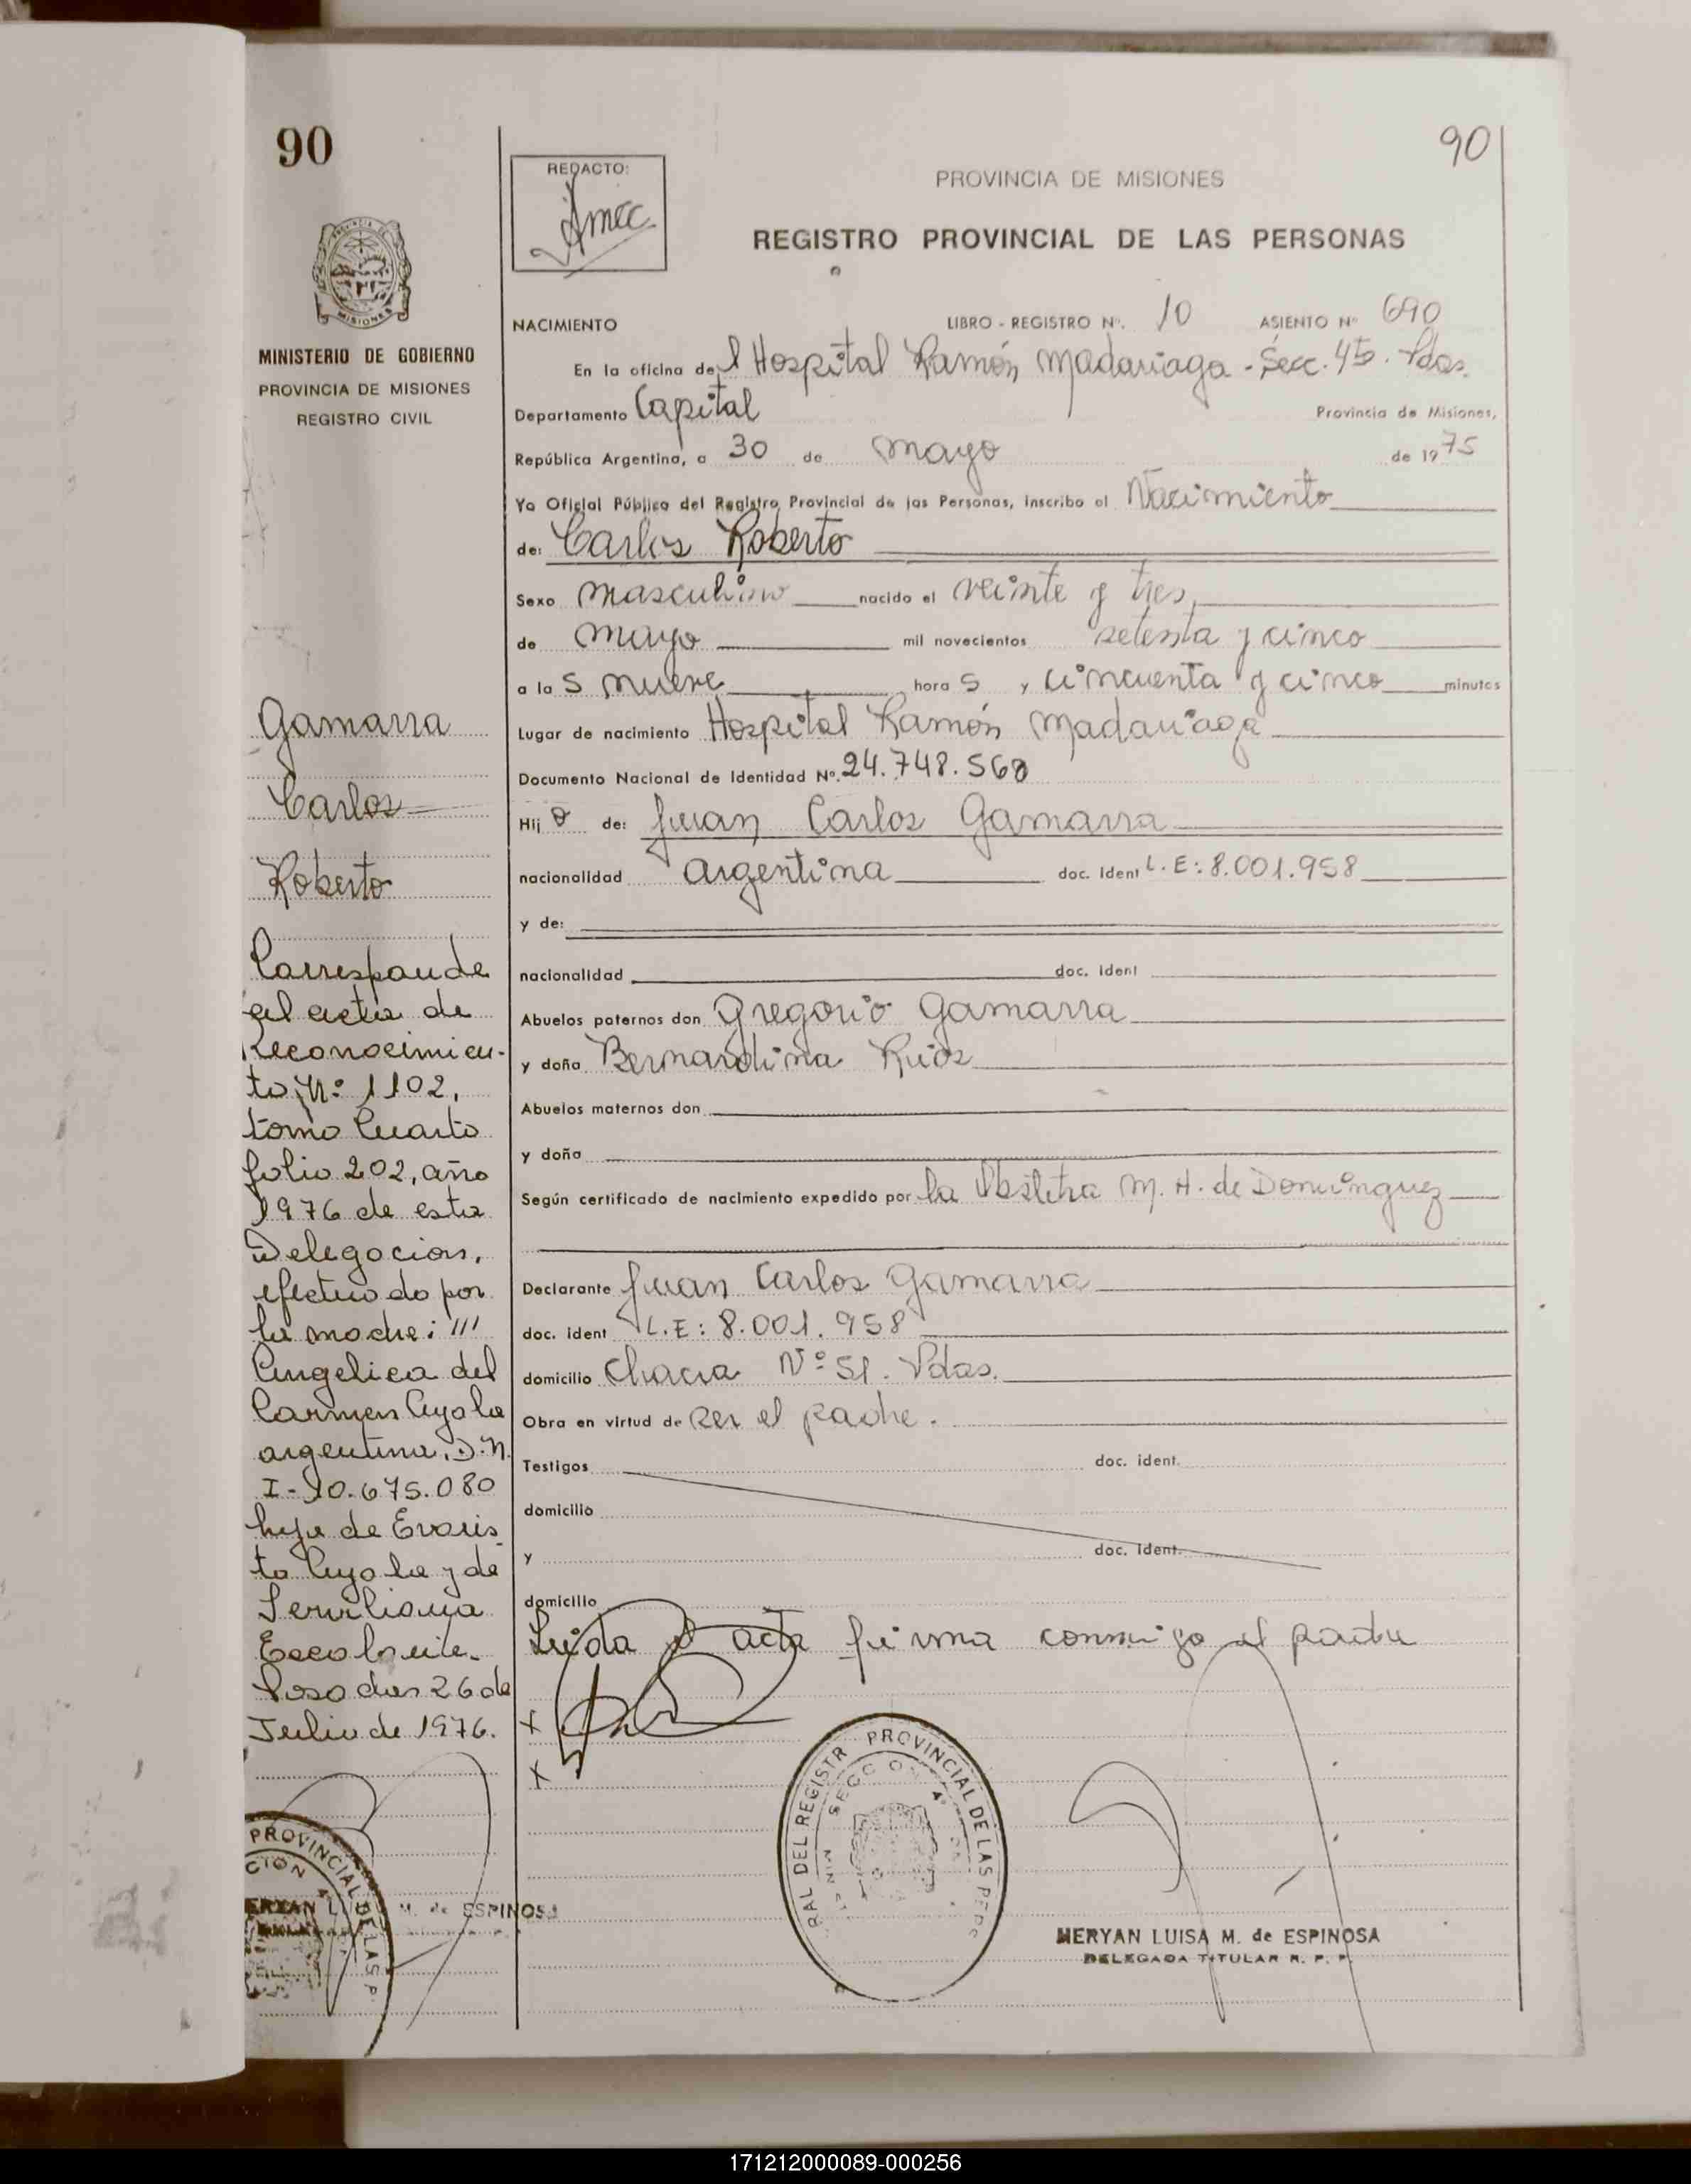 90
90
REDACTO:
PROVINCIA DE MISIONES
REGISTRO PROVINCIAL DE LAS PERSONAS
MINISTERIO DE GOBIERNO
PROVINCIA DE MISIONES
REGISTRO CIVIL
NACIMIENTO LIBRO - REGISTRO Nº. 10 ASIENTO Nº 690
En la oficina del Hospital Ramón Madariaga - Secc. 4ta. Pdas.
Departamento Capital Provincia de Misiones,
República Argentina, a 30 de mayo de 1975
Yo Oficial Público del Registro Provincial de las Personas, inscribo el Nacimiento
de: Carlos Roberto
Sexo masculino nacido el veinte y tres
de mayo mil novecientos setenta y cinco
a las nueve horas y cincuenta y cinco minutos
Lugar de nacimiento Hospital Ramón Madariaga
Documento Nacional de Identidad Nº. 24.748.568
Hijo de: Juan Carlos Gamarra
nacionalidad argentina doc. ident L.E: 8.001.958
y de:
nacionalidad doc. ident
Abuelos paternos don Gregorio Gamarra
y doña Bernardina Rios
Abuelos maternos don
y doña
Según certificado de nacimiento expedido por la Obstetra M. H. de Dominguez
Declarante Juan Carlos Gamarra
doc. ident L.E: 8.001.958
domicilio Chacra Nº 51. Pdas.
Obra en virtud de ser el padre.
Testigos doc. ident.
domicilio
y doc. ident.
domicilio
Leida el acta firma conmigo el padre
x
x
Gamarra
Carlos
Roberto
Corresponde
al acta de
Reconocimien-
to Nº: 1102,
tomo Cuarto
folio 202, año
1976 de esta
Delegacion,
efectuado por
la madre: ///
Angelica del
Carmen Ayala
argentina, D.N.
I-10.675.080
hija de Evaris-
to Ayala y de
Serviliana
Escalante.
Posadas 26 de
Julio de 1976.
RAL DEL REGISTR PROVINCIAL DE LAS PERS
SECCION 4ª
PROVINCIAL DE LAS P.
CION 4
MERYAN LUISA M. de ESPINOSA
MERYAN LUISA M. de ESPINOSA
DELEGADA TITULAR R. P. P.
171212000089-000256